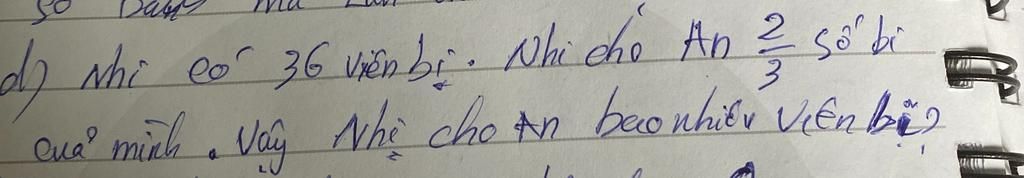 d) Nhi có 36 viên bi. Nhi cho An 2/3 số bi
của mình. Vậy Nhi cho An bao nhiêu viên bi?